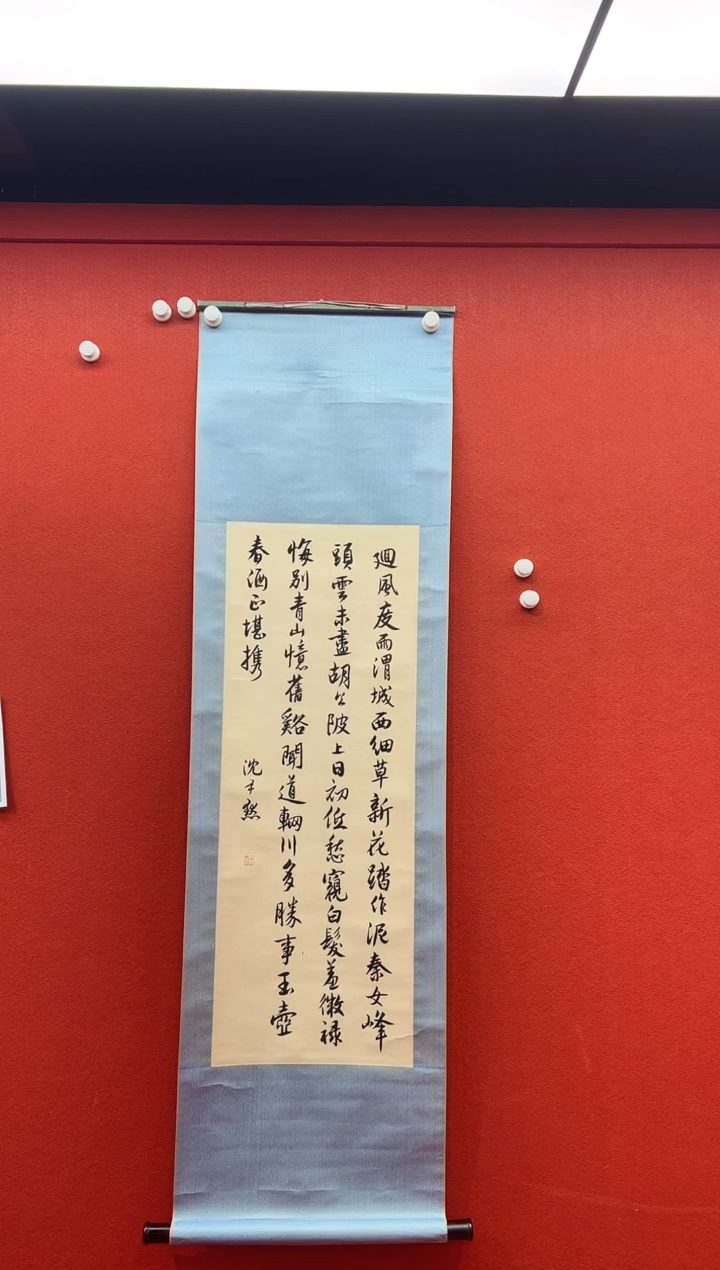 廻風度雨渭城西細草新花踏作泥秦女峰
頭雪未盡胡公陂上日初低愁窺白髮羞微禄
悔別青山憶舊谿聞道輞川多勝事玉壺
春酒正堪携
沈尹默